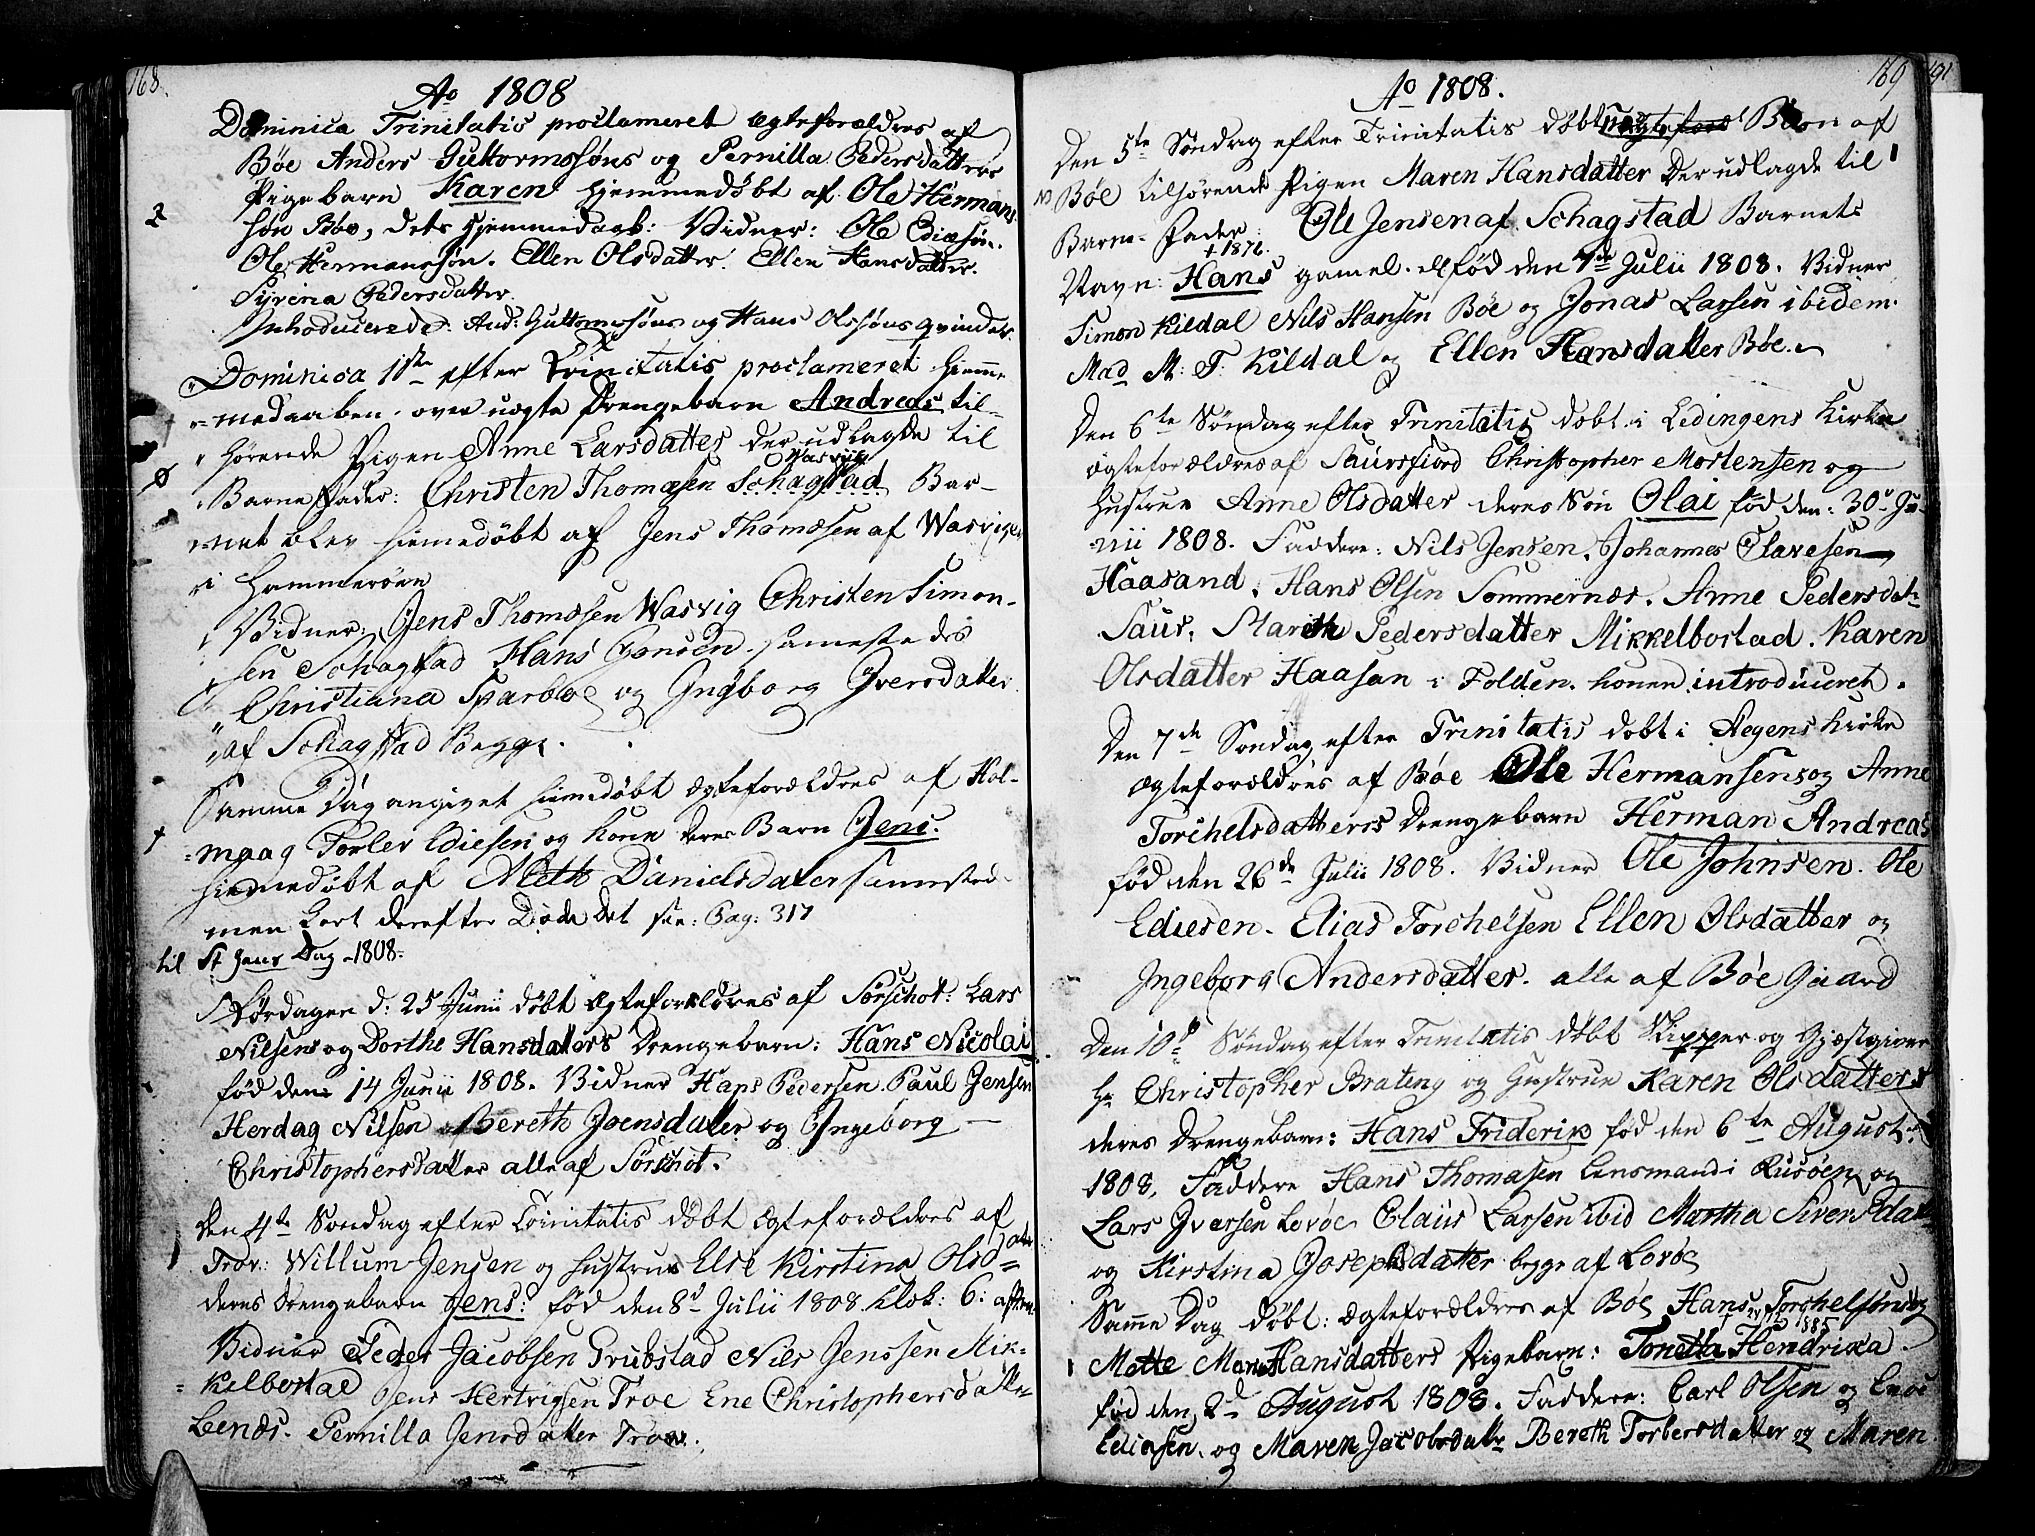 168.
Ao 1808
Dominica Trinitatis proclameret ægteforældres af
Bøe Anders Guttormssøns og Pernilla Pedersdatters
Pigebarn Karen hjemmedøbt af Ole Hermans
2
søn Bøe, dets hjemmedaab: Vidner: Ole Ediæsøn.
Ole Hermanssøn. Ellen Olsdatter. Ellen Hansdatter.
Syrena Pedersdatter.
Introducerede: And: Guttormssøns og Hans Olssøns qvinder.
Dominica 1ste efter Trinitatis proclameret hiemme
medaaben over uægte Drengebarn Andreas til-
hørende Pigen Anne Larsdatter der udlagde til
Wasvig
Barne Fader: Christen Thomæsen Schagstad Bar-
net blev hiemedøbt af Jens Thomæsen af Wasvigen
i Hammerøen
Vidner: Jens Thomæsen Wasvig Christen Simon-
sen Schagstad Hans Jonsen sammestedes
Christiana Sparboe og Ingborg Iversdatter
af Schagstad Begge.
Samme Dag angivet hiemedøbt ægteforældres af Hol-
maag Torlev Ediesen og kone deres Barn Jens.
hiemmedøbt af Meth Danielsdatter sammested
men kort derefter Døde det see: Pag: 317
til St Jens Dag 1808.
Lørdagen d: 25 Junii døbt ægteforældres af Sørschot: Lars
Nilsens og Dorthe Hansdatters Drengebarn: Hans Nicolai
fød den 14 Junii 1808. Vidner Hans Pedersen. Paul Jensen
Herdag Nilsen Bereth Joensdatter og Ingeborg
Christophersdatter alle af Sørschot.
Den 4te Søndag efter Trinitatis døbt ægteforældres af
Trov: Willum Jensen og hustrue Else Kirstina Olsdatter
deres Drengebarn Jens: fød den 8d Julii 1808 klok: 6: aften
Vidner Peder Jacobsen Grubstad Nils Jenssen Mik-
kelbostad Jens Hertvigsen Troe Ene Christophersdatter
Leenæs. Pernilla Jensdatter Trov.
169
191
Ao 1808.
Den 5te Søndag efter Trinitatis døbt uægte Barn af
Bøe tilhørende Pigen Maren Hansdatter Der udlagde til
Barne-Fader: Ole Jensen af Schagstad Barnets
+ 1876.
Navn: Hans gamel. fød den 7de Julii 1808. Vidner
Simon Kildal Nils Hansen Bøe og Jonas Larsen ibidem.
Mad M: T: Kildal og Ellen Hansdatter Bøe.
Den 6te Søndag efter Trinitatis døbt i Lødingens Kirke
ægteforældres af Saursfiord Christopher Mortensen og
Hustrue Anne Olsdatter deres Søn Olai fød den: 30 Ju-
nii 1808. Faddere: Nils Jensen, Johannes Olavesen
Haasand, Hans Olsen Sommernæs. Anne Pedersdat:
Saur, Marith Pedersdatter Mikkelbostad. Karen
Olsdatter Haasan i Folden. konen introduceret.
Den 7de Søndag efter Trinitatis døbt i Aegens kirke
ægteforældres af Bøe Ole Hermansens og Anne
Torchelsdatters Drengebarn Herman Andreas
fød den 26de Julii 1808. Vidner Ole Johnsen. Ole
Ediesen. Elias Torchelsen Ellen Olsdatter og
Ingeborg Andersdatter. alle af Bøe Gaard
Den 10de Søndag efter Trinitatis døbt Skipper og Gjæstgiver
Hr Christopher Brateng og Hustrue Karen Olsdatters
deres Drengebarn: Hans Friderik fød den 6te August:
1808. Faddere Hans Thomæsen Lensmand i Rusøen og
Lars Iversen Lovøe Claus Larsen ibid Martha Siversdatter
og Kirstina Josephsdatter begge af Lovøe
Samme Dag døbt: ægteforældres af Bøe Hans Torchelsøns og
1885
Mette Maria Hansdatters Pigebarn: Tonetta Hendrika.
fød den 2d August 1808. Faddere: Carl Olsen og Enoc
Ediasen. og Maren Jacobsdatter Bereth Torbersdatter og Maren